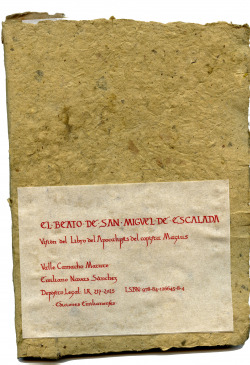 EL BEATO DE SAN MIGUEL DE ESCALADA
Visión del Libro del Apocalipsis del copista Magius
Valle Camacho Matute
Emiliano Navas Sánchez
Depósito Legal: LR 217-2015 ISBN 978-84-
Ediciones